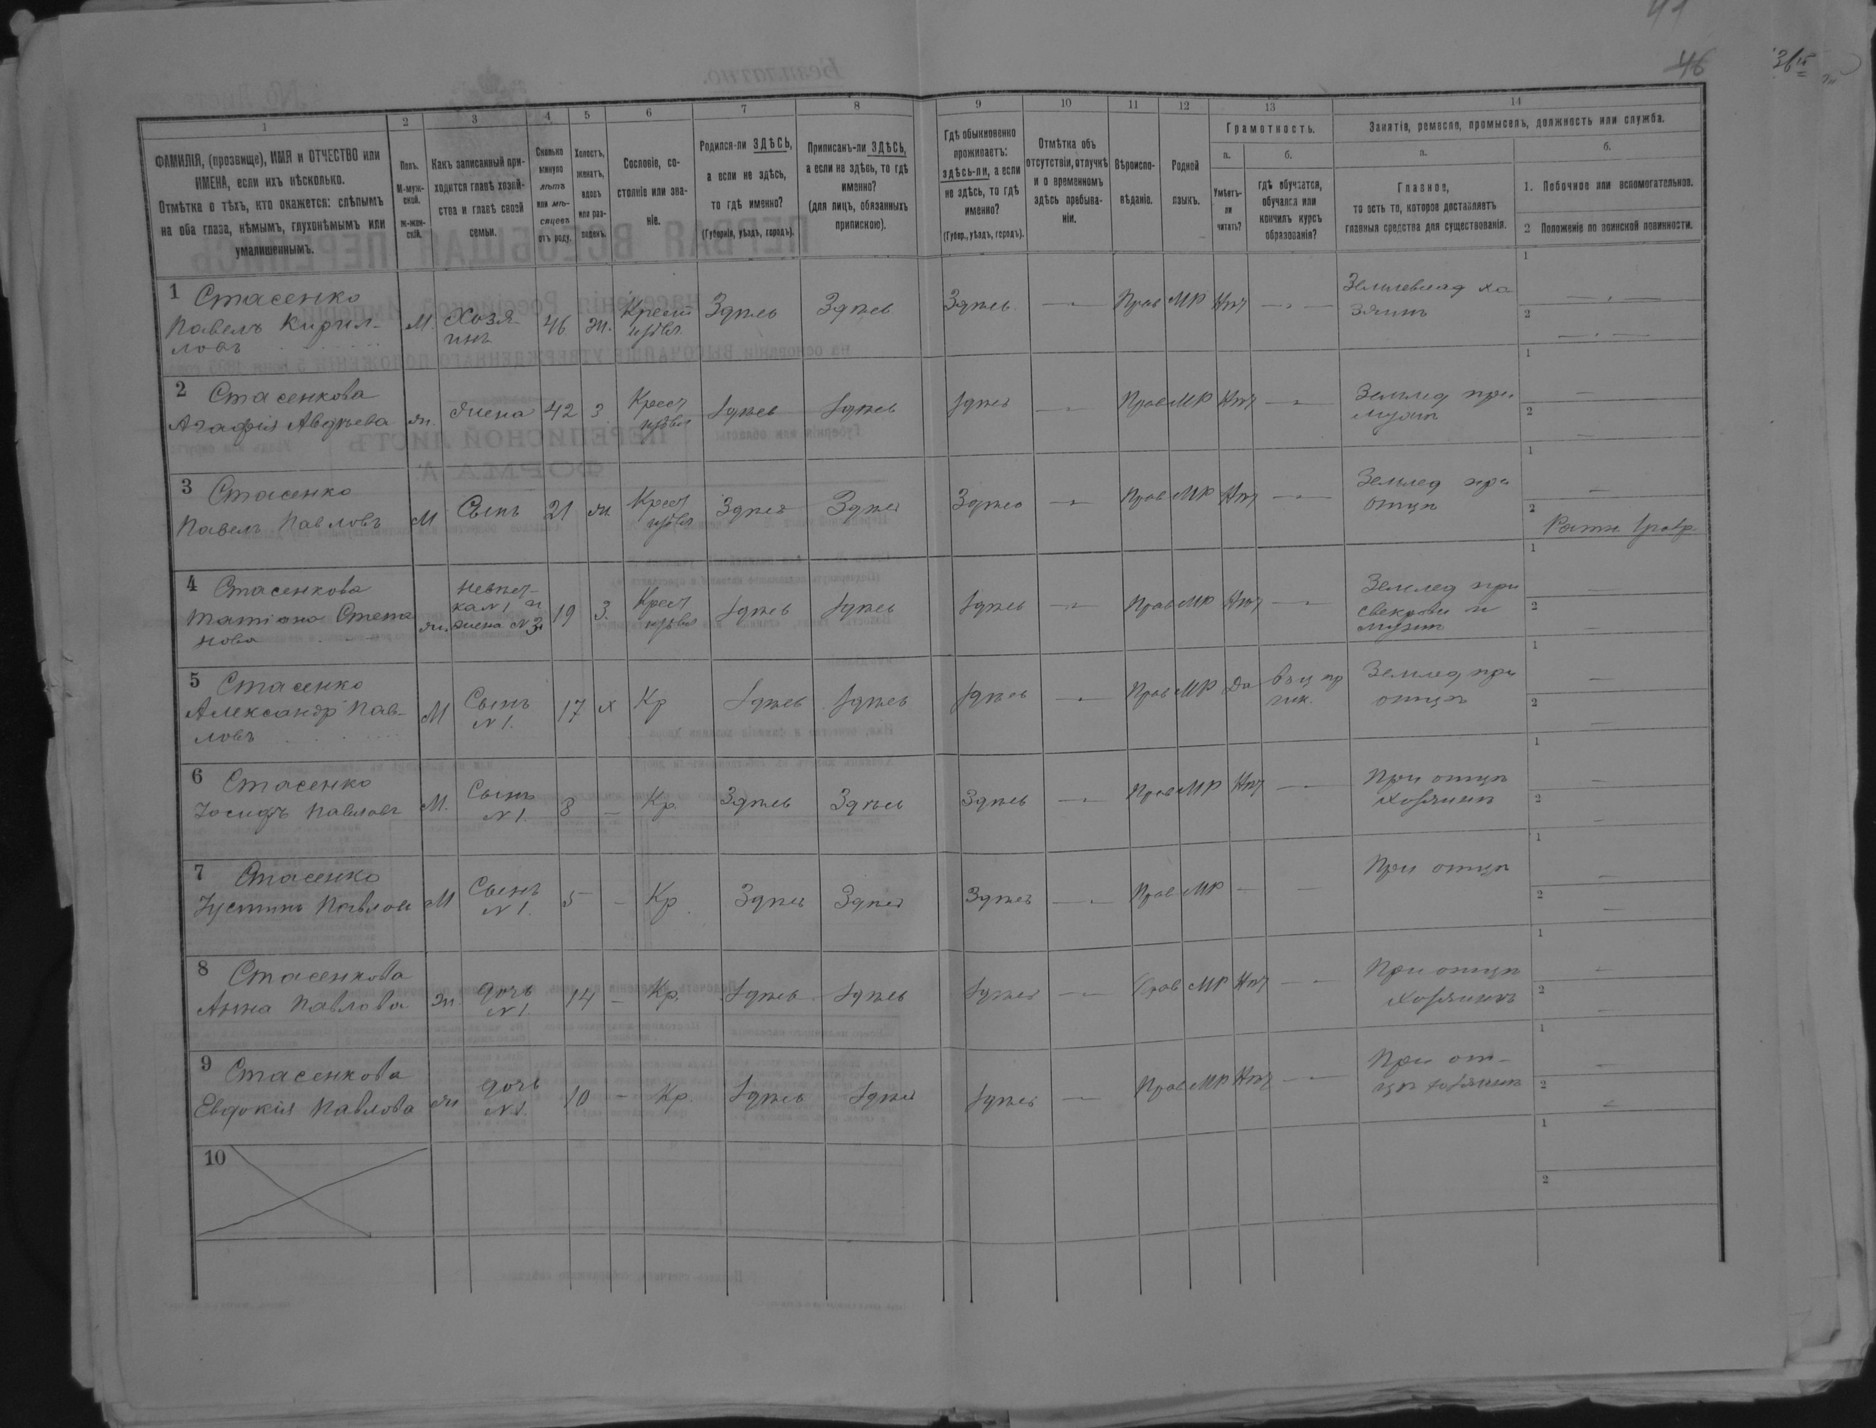 41
46
36
1
2
3
4
5
6
7
8
9
10
11
12
13
14
ФАМИЛІЯ, (прозвище), ИМЯ и ОТЧЕСТВО или
ИМЕНА, если ихъ нѣсколько.
Отмѣтка о тѣхъ, кто окажется: слѣпымъ
на оба глаза, нѣмымъ, глухонѣмымъ или
умалишеннымъ.
Полъ.
М-муж-
ской.
Ж-жен-
скій.
Какъ записанный при-
ходится главѣ хозяй-
ства и главѣ своей
семьи.
Сколько
минуло
лѣтъ
или мѣ-
сяцевъ
отъ роду.
Холостъ,
женатъ,
вдовъ
или раз-
веденъ.
Сословіе, со-
стояніе или зва-
ніе.
Родился-ли ЗДѢСЬ,
а если не здѣсь,
то гдѣ именно?
(Губернія, уѣздъ, городъ).
Приписанъ-ли ЗДѢСЬ,
а если не здѣсь, то гдѣ
именно?
(для лицъ, обязанныхъ
припискою).
Гдѣ обыкновенно
проживаетъ:
здѣсь-ли, а если
не здѣсь, то гдѣ
именно?
(Губер., уѣздъ, городъ).
Отмѣтка объ
отсутствіи, отлучкѣ
и о временномъ
здѣсь пребыва-
ніи.
Вѣроиспо-
вѣданіе.
Родной
языкъ.
Грамотность.
а.
Умѣетъ-
ли
читать?
б.
гдѣ обучается,
обучался или
кончилъ курсъ
образованія?
Занятія, ремесло, промыселъ, должность или служба.
а.
Главное,
то есть то, которое доставляетъ
главныя средства для существованія.
б.
1. Побочное или вспомогательное.
2 Положеніе по воинской повинности.
1 Стасенко
Павелъ Кирил-
ловъ
М. Хозя-
инъ 46 ж. Здѣсь Здѣсь Здѣсь — Прав МР Нѣт —
Землевлад хо
зяинъ
1 —
2 —
2 Стасенкова
Агафія Авдѣева ж. жена 42 з Крест Здѣсь Здѣсь Здѣсь — Прав МР Нѣт —
Землед при
мужѣ
1 —
2 —
3 Стасенко
Павелъ Павловъ М Сынъ 21 ж. Крест Здѣсь Здѣсь Здѣсь — Прав МР Нѣт —
Землед при
отцѣ
1 —
2 Ратн
4 Стасенкова
Татіана Степа
нова
ж. невѣст-
ка N 1 и
жена N 3 19 з. Крест Здѣсь Здѣсь Здѣсь — Прав МР Нѣт —
Землед при
свекрови и
мужѣ
1 —
2 —
5 Стасенко
Александръ Пав-
ловъ
М Сынъ
N 1. 17 х Кр Здѣсь Здѣсь Здѣсь — Прав МР Да
Землед при
отцѣ
1 —
2 —
6 Стасенко
Іосифъ Павловъ М. Сынъ
N 1. 8 — Кр. Здѣсь Здѣсь Здѣсь — Прав МР Нѣт —
При отцѣ
хозяинѣ
1 —
2 —
7 Стасенко
Іустинъ Павлов М Сынъ
N 1. 5 — Кр. Здѣсь Здѣсь Здѣсь — Прав МР — —
При отцѣ
1 —
2 —
8 Стасенкова
Анна Павлова ж. дочь
N 1. 14 — Кр. Здѣсь Здѣсь Здѣсь — Прав МР Нѣт —
При отцѣ
хозяинѣ
1 —
2 —
9 Стасенкова
Евдокія Павлова ж дочь
N 1. 10 — Кр. Здѣсь Здѣсь Здѣсь — Прав МР Нѣт —
При от-
цѣ хозяинѣ
1 —
2 —
10
1
2